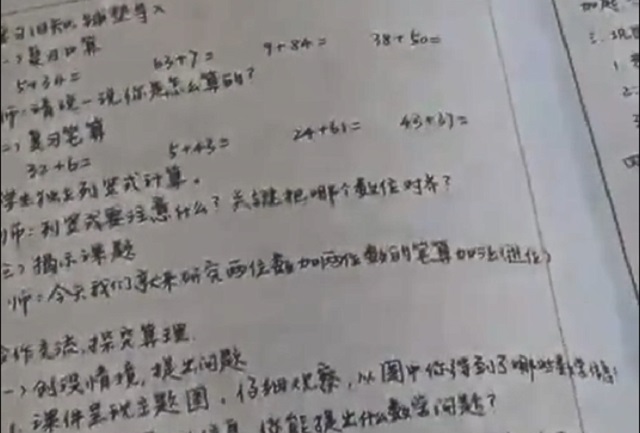 复习旧知,铺垫导入
一)复习口算
5+34= 63+7= 9+84= 38+50=
师:请说一说你是怎么算的?
二)复习笔算
32+6= 5+43= 24+61= 43+37=
学生独立列竖式计算。
师:列竖式要注意什么?关键把哪个数位对齐?
三)揭示课题
师:今天我们就来研究两位数加两位数的笔算加法(进位)
合作交流,探究算理
一)创设情境,提出问题
1.课件呈现主题图,仔细观察,从图中你得到了哪些数学信息
信息,你能提出什么数学问题?
三、巩
1
2
四